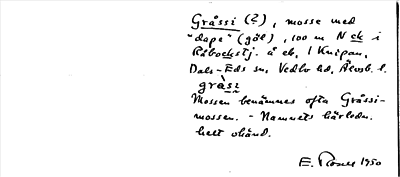 Gråssi (?), mosse med
"dape" (göl), 100 m N ck i
Råbockstj. å ek. 1 Knipan,
Dals-Eds sn, Vedbo hd, Älvsb. l.
gràsi
Mossen benämnes ofta Gråssi-
mossen. - Namnets härledn.
helt okänd.
E. 1950